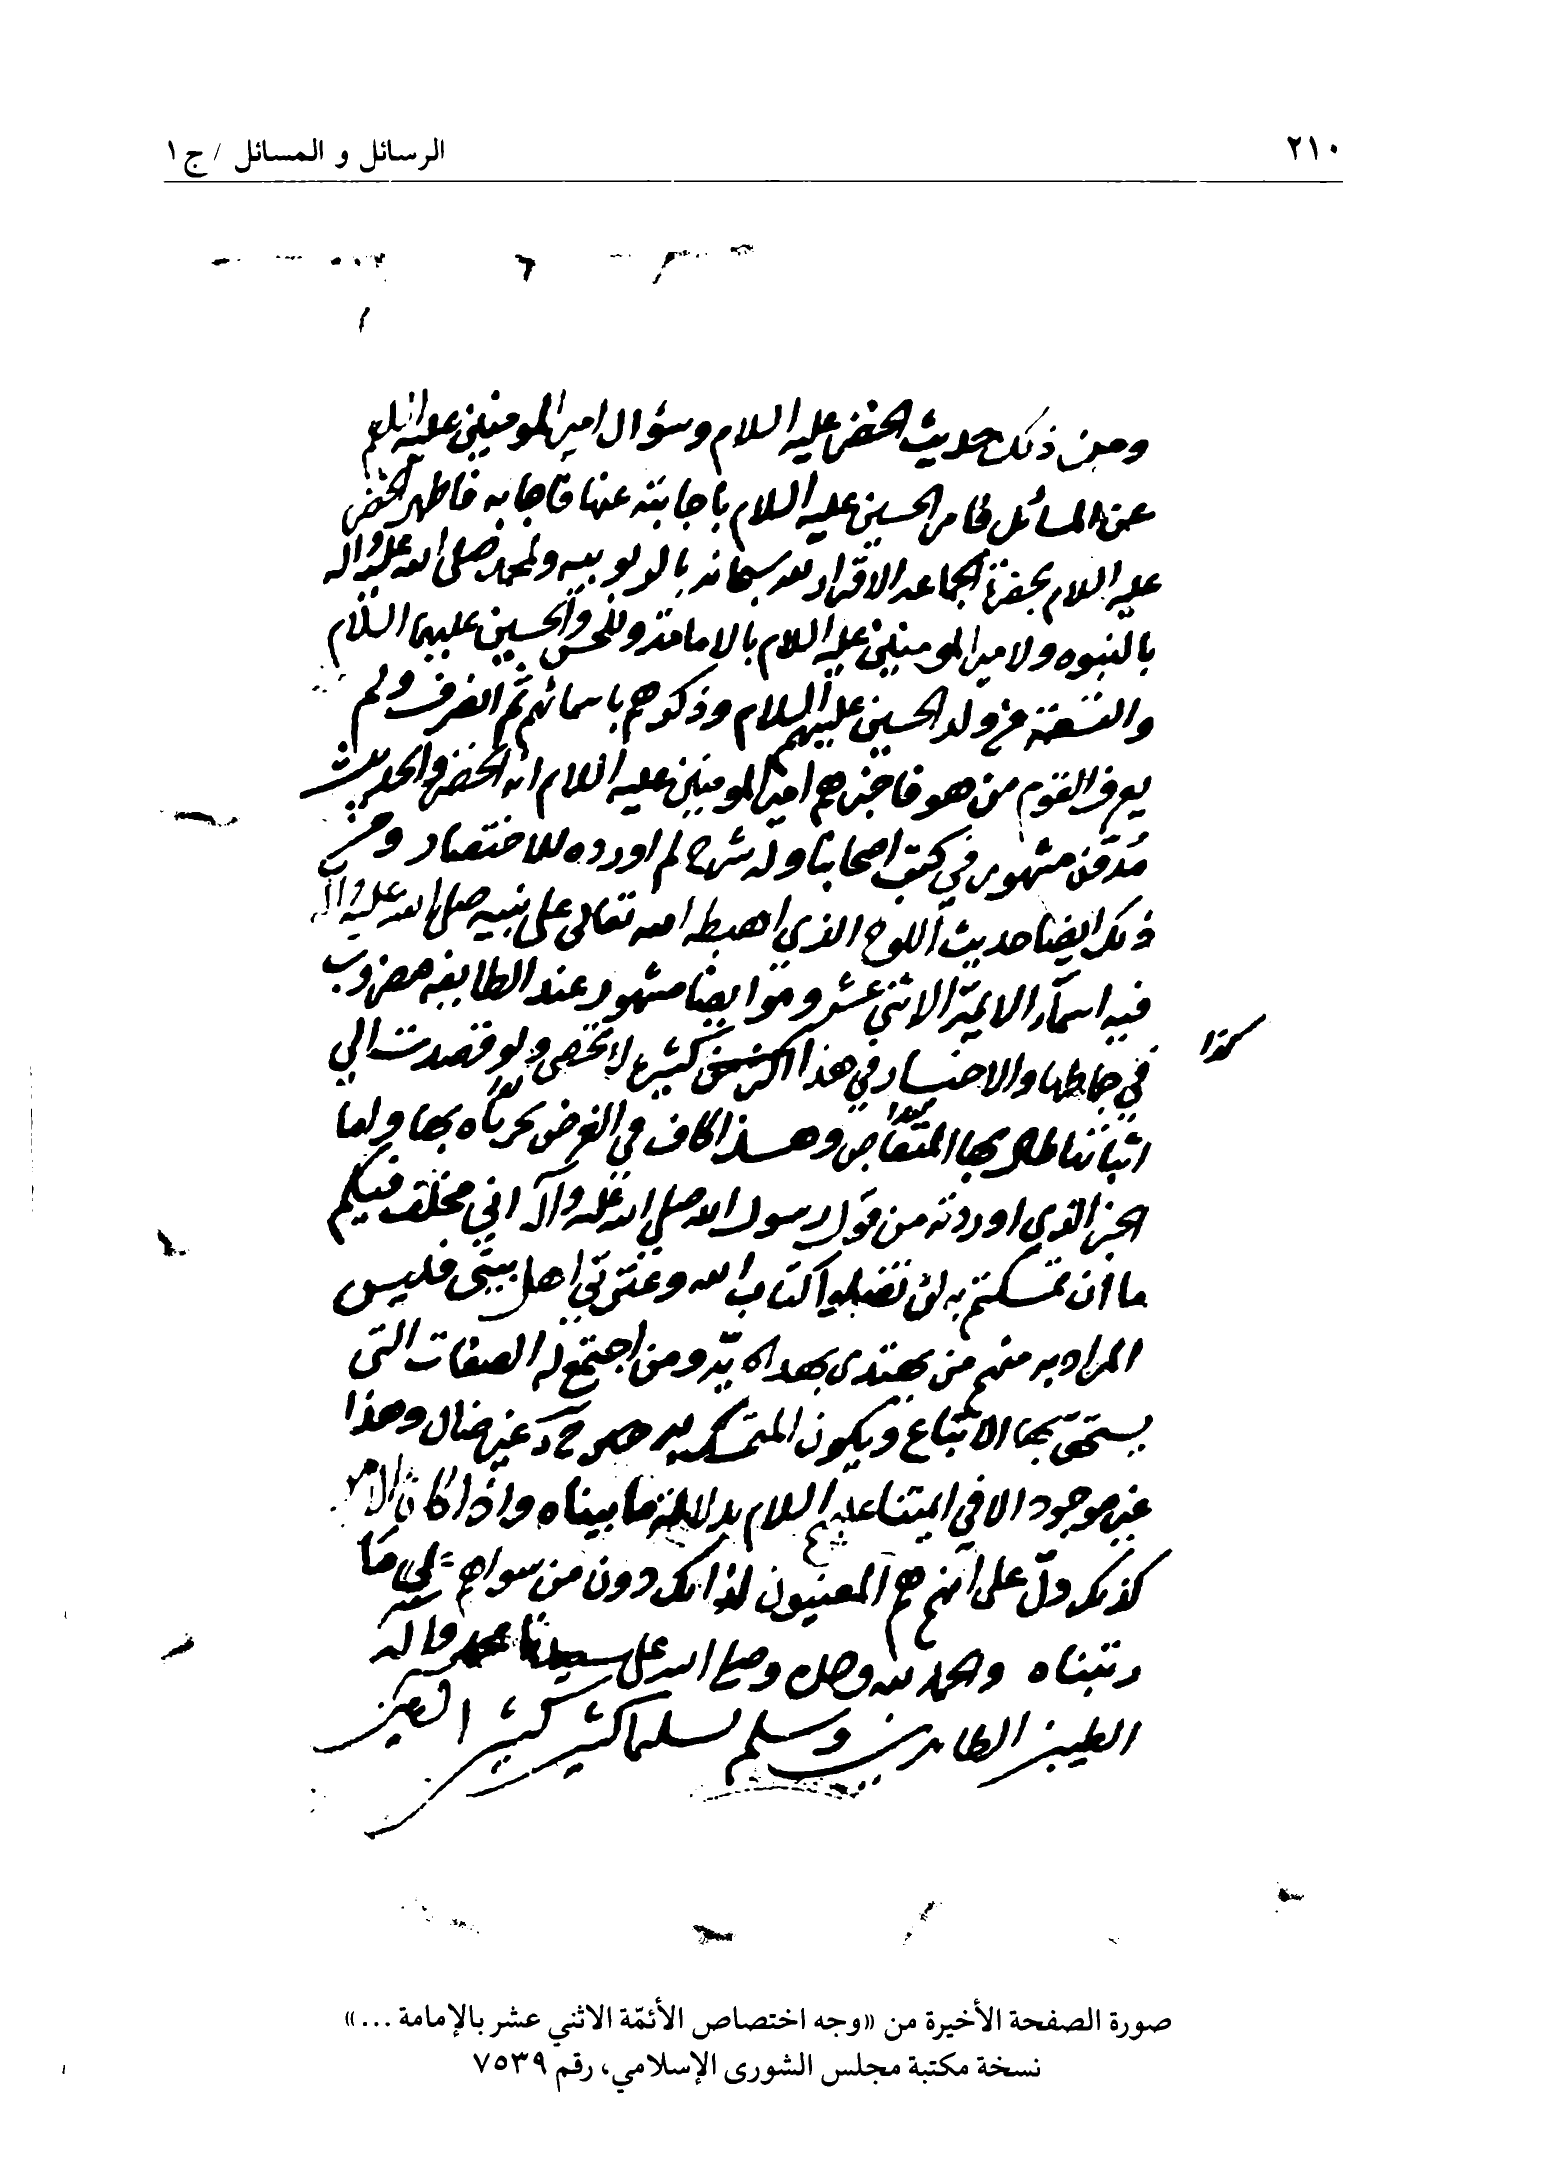 ٢١٠
الرسائل و المسائل / ج١
ومن ذلك حديث الخضر عليه السلام وسؤال امير المومنين عليه السلام
عن المسائل فامر الحسين عليه السلام باجابته عنها فاجابه فاظهر الخضر
عليه السلام بحضرة الجماعه الاقرار لله سبحانه بالربوبيه ولمحمد صلى الله عليه واله
بالنبوه ولامير المومنين عليه السلام بالامامة وللحسن والحسين عليهما السلام
والتسعة من ولد الحسين عليهم السلام وذكرهم باسمائهم ثم انصرف ولم
يعرف القوم من هو فاخبرهم امير المومنين عليه السلام انه الخضر والحديث
مدوّن مشهور في كتب اصحابنا وله شرح لم اورده للاختصار ومن
ذلك ايضا حديث اللوح الذي اهبطه الله تعالى على نبيه صلى الله عليه واله
فيه اسمآء الائمة الاثني عشر وهو ايضا مشهور عند الطايفه مضروب
كذا
في والاخبار في هذا كثيره لا تحصى ولو قصدت الى
اثباتنا لطال بها وهذا كاف في الغرض بها واما
الخبر الذي اوردته من قول رسول الله صلى الله عليه واله اني مخلف فيكم
ما ان تمسكتم به لن تضلوا كتاب الله وعترتي اهل بيتي فليس
المراد به منهم من يهتدى بهداه ومن اجتمع له الصفات التى
يستحق بها الاتباع ويكون المتمسك به غير ضال وهذا
غير موجود الا في ايمتنا عليهم السلام بدلالة ما بيناه واذا كان الامر
كذلك دلّ على انهم هم المعنيون لذلك دون من سواهم على ما
رتبناه والحمد لله وحده وصلى الله على سيدنا محمد واله
الطيبين الطاهرين وسلم تسليما كثيرا كثيرا
صورة الصفحة الأخيرة من «وجه اختصاص الأئمّة الاثني عشر بالإمامة ...»
نسخة مكتبة مجلس الشورى الإسلامي، رقم ٧٥٣٩